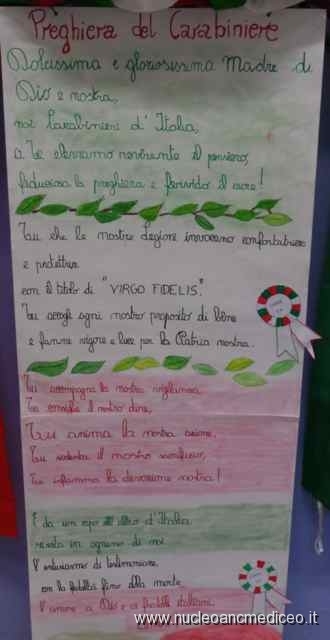 Preghiera del Carabiniere
Dolcissima e gloriosissima Madre di
Dio e nostra,
noi Carabinieri d'Italia,
a Te eleviamo reverente il pensiero,
fiduciosa la preghiera e fervido il cuore!
Tu che le nostre Legioni invocano confortatrice
e protettrice
con il titolo di "VIRGO FIDELIS".
Tu accogli ogni nostro proposito di bene
e fanne vigore e luce per la Patria nostra.
Tu accompagna la nostra vigilanza,
Tu consiglia il nostro dire,
Tu anima la nostra azione,
Tu sostenta il nostro sacrificio,
Tu infiamma la devozione nostra!
E da un capo all'altro d'Italia
suscita in ognuno di noi
l'entusiasmo di testimoniare,
con la fedeltà fino alla morte
l'amore a Dio e ai fratelli italiani.
www.nucleoancmediceo.it